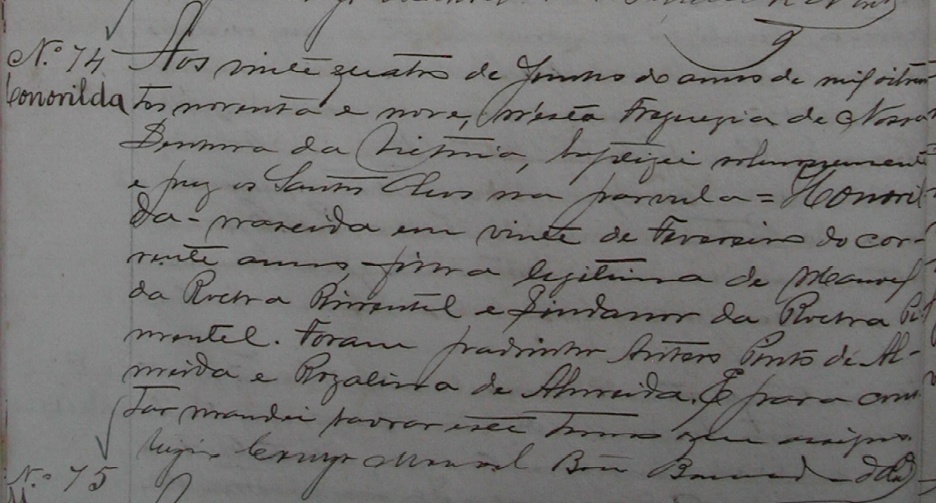 N.º 74
Honorilda
Aos vinte quatro de Junho do anno de mil oitocen
tos noventa e nove, n'esta Freguezia de Nossa
Senhora da Victoria, baptizei solemnemente
e puz os Santos Oleos na parvula = Honoril
da - nascida em vinte de Fevereiro do cor-
rente anno, filha legitima de Manoel
da Rocha Pimentel e Lindanor da Rocha Pi
mentel. Foram padrinhos Antero Pinto de Al-
meida e Rozalina de Almeida. E para cons
tar mandei lavrar este termo que assigno.
Vigario Conego Manoel
N.º 75